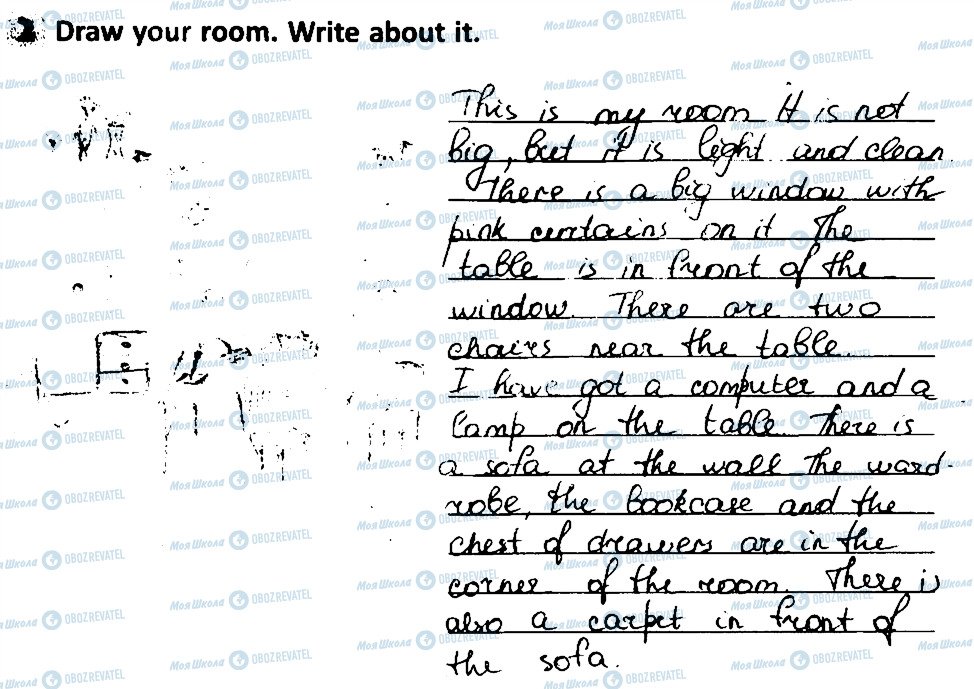 2 Draw your room. Write about it.
This is my room It is not
big, but it is light and clean.
There is a big window with
pink curtains on it The
table is in front of the
window. There are two
chairs near the table.
I have got a computer and a
lamp on the table. There is
a sofa at the wall The ward-
robe, the bookcase and the
chest of drawers are in the
corner of the room. There is
also a carpet in front of
the sofa.
Моя Школа OBOZREVATEL